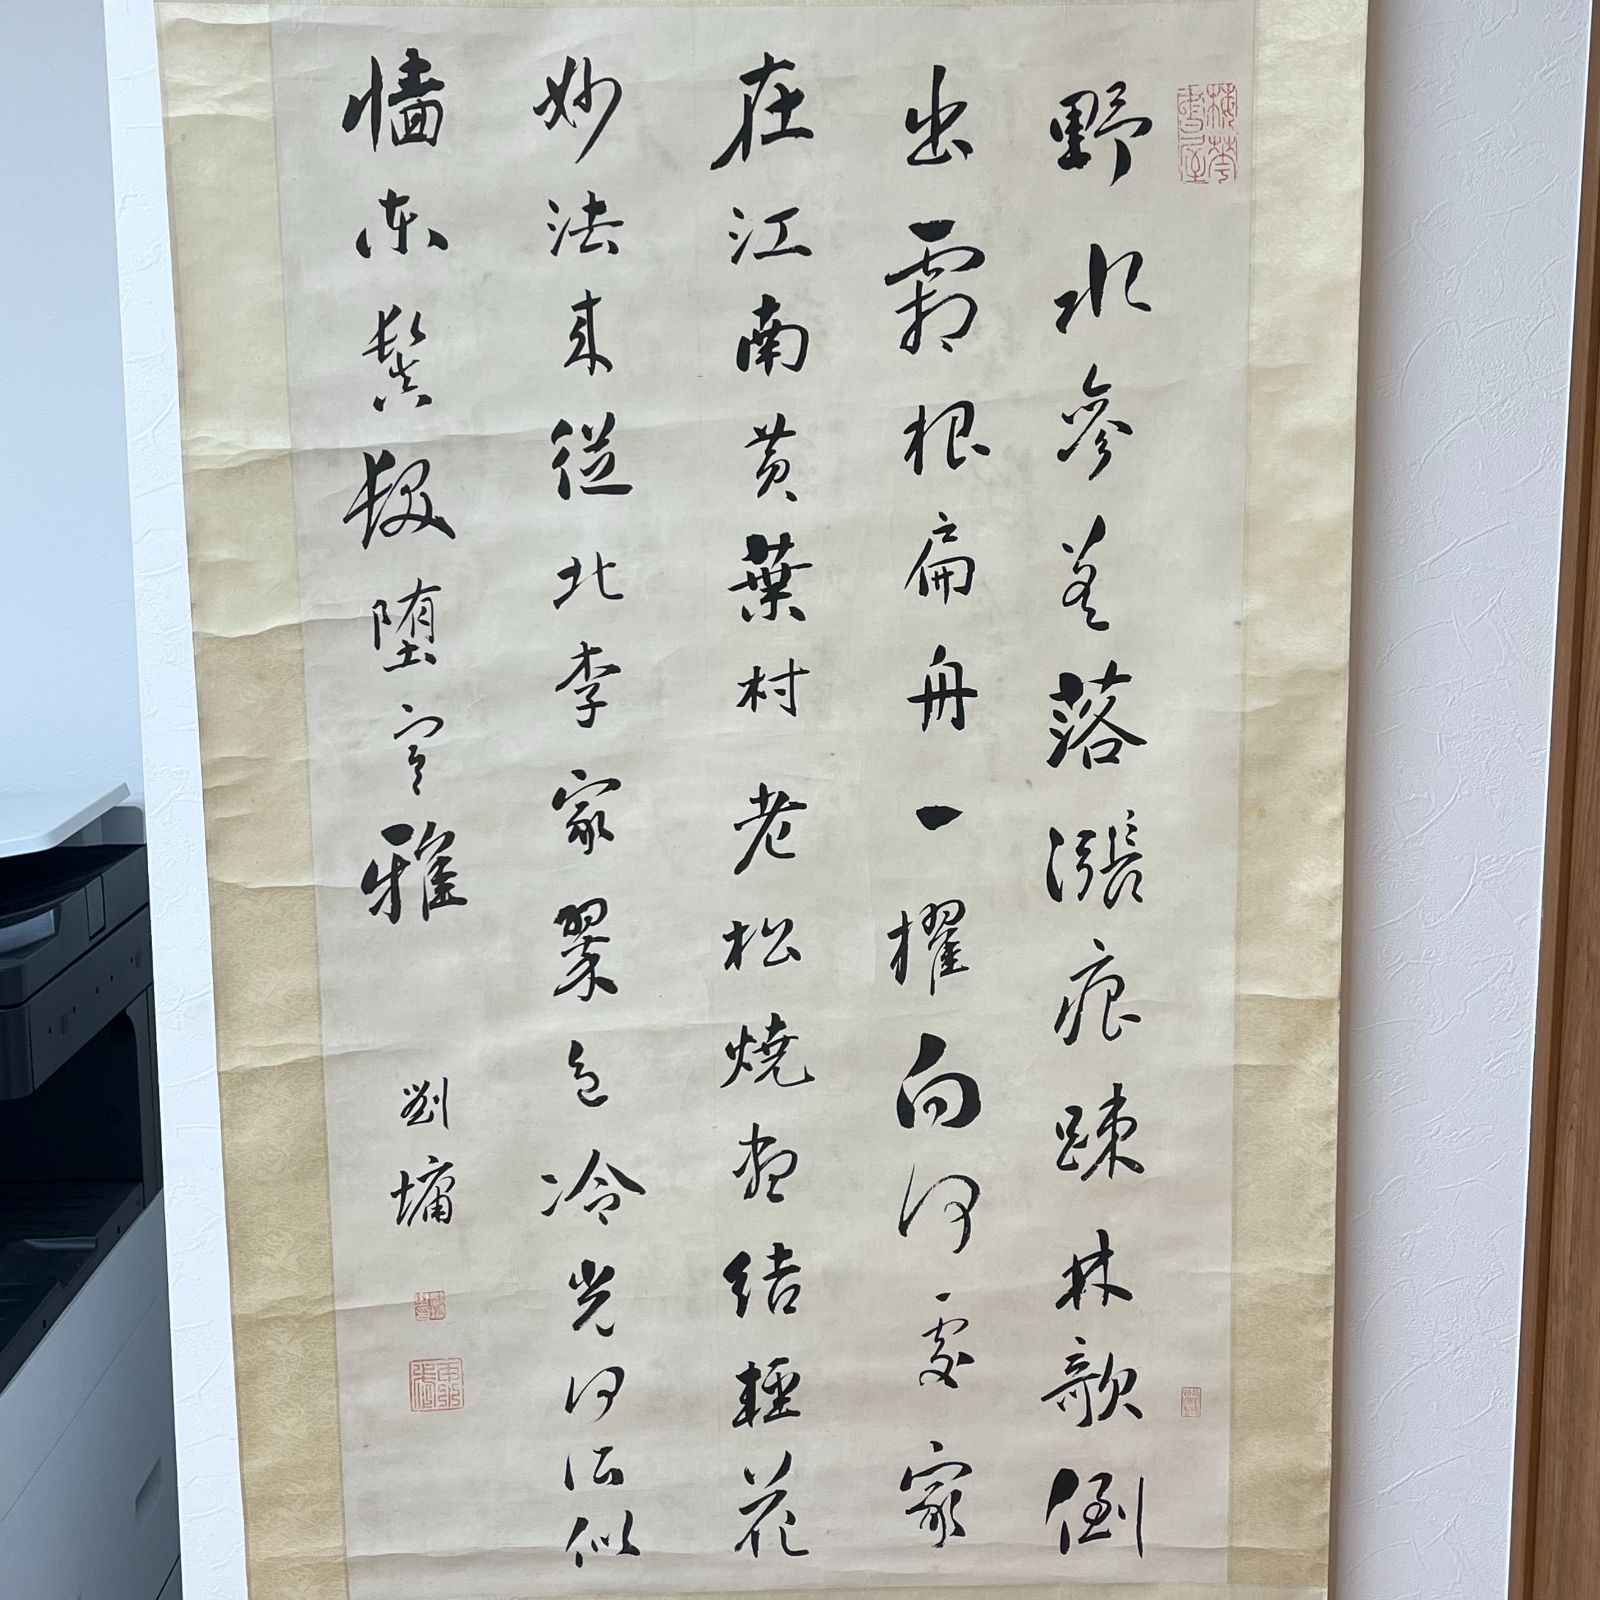 野水參差落漲痕踈林欹倒
出霜根扁舟一櫂向何處家
在江南黄葉村老松燒盡結輕花
妙法來從北李家翠色冷光何所似
墻東鬒髮墮寒雅
劉墉